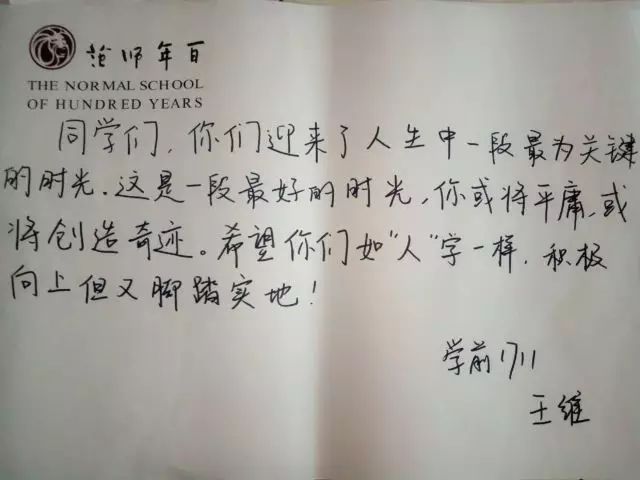 范师年百
THE NORMAL SCHOOL
OF HUNDRED YEARS
同学们，你们迎来了人生中一段最为关键
的时光。这是一段最好的时光，你或将平庸，或
将创造奇迹。希望你们如"人"字一样，积极
向上但又脚踏实地！
学前1711
王维